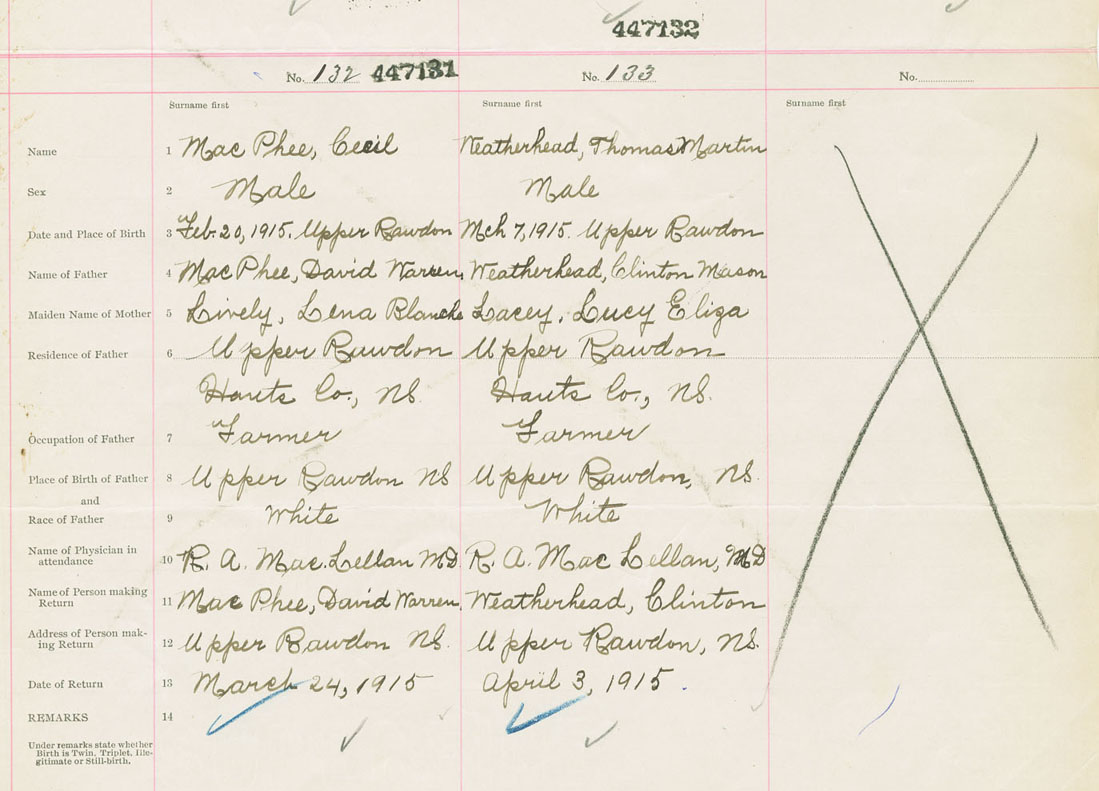 447132
No. 132 447131 No. 133 No.
Surname first Surname first Surname first
Name 1 Mac Phee, Cecil Weatherhead, Thomas Martin
Sex 2 Male Male
Date and Place of Birth 3 Feb. 20, 1915. Upper Rawdon Mch 7, 1915. Upper Rawdon
Name of Father 4 Mac Phee, David Warren, Weatherhead, Clinton Mason
Maiden Name of Mother 5 Lively, Lena Blanche Lacey, Lucy Eliza
Residence of Father 6 Upper Rawdon Upper Rawdon
Hants Co., NS. Hants Co., NS.
Occupation of Father 7 Farmer Farmer
Place of Birth of Father 8 Upper Rawdon NS Upper Rawdon, NS.
and
Race of Father 9 White White
Name of Physician in
attendance 10 R. A. Mac Lellan MD. R. A. Mac Lellan, MD
Name of Person making
Return 11 Mac Phee, David Warren, Weatherhead, Clinton
Address of Person mak-
ing Return 12 Upper Rawdon NS. Upper Rawdon, NS.
Date of Return 13 March 24, 1915 April 3, 1915.
REMARKS 14
Under remarks state whether
Birth is Twin, Triplet, Ille-
gitimate or Still-birth.